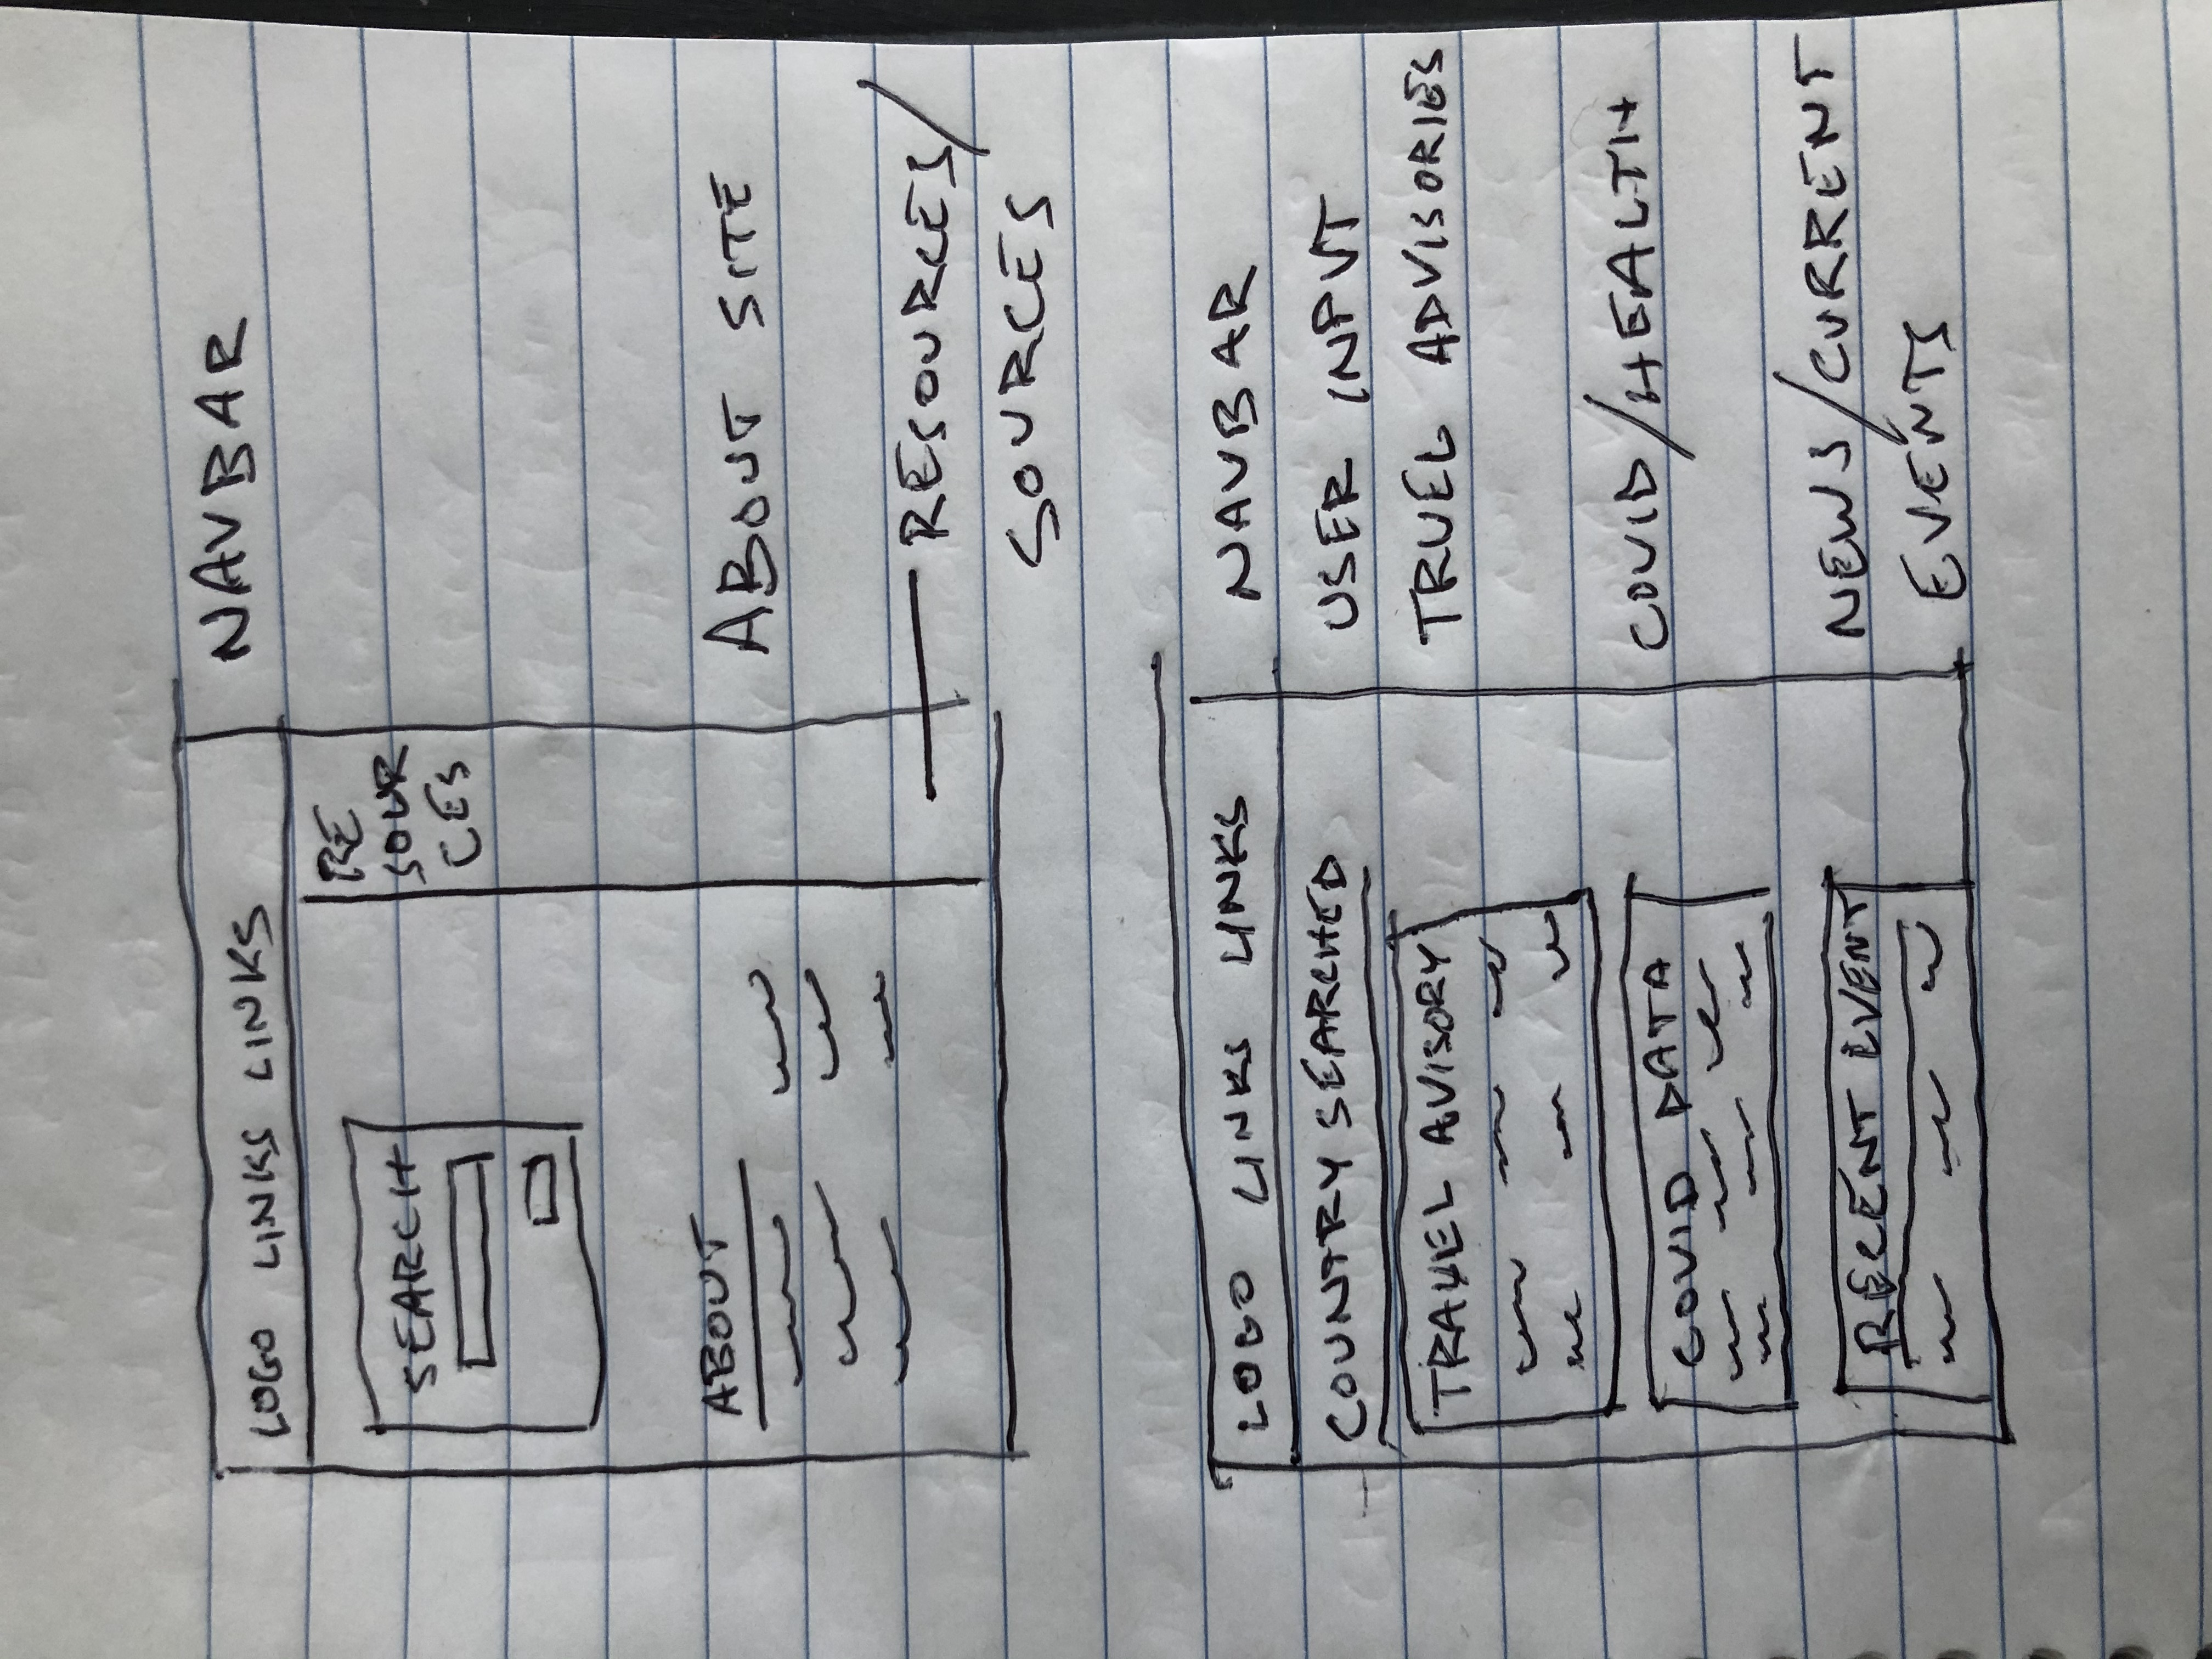 LOGO LINKS LINKS NAVBAR
RE
SOUR
CES
SEARCH
ABOUT
ABOUT SITE
RESOURCES/
SOURCES
LOGO LINKS LINKS NAVBAR
COUNTRY SEARCHED USER INPUT
TRAVEL AVISORY TRUEL ADVISORIES
COVID DATA COVID/HEALTH
RECENT EVENT NEWS/CURRENT
EVENTS